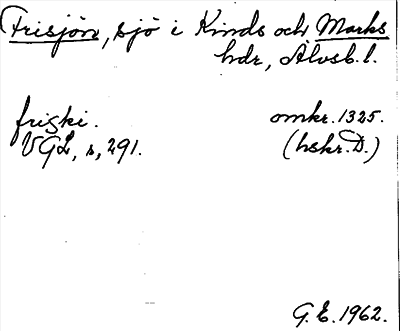 Frisjön, sjö i Kinds och Marks
hdr, Älvsb.l.
friski. omkr. 1325.
VGL, s, 291. (hskr. D.)
G.E. 1962.